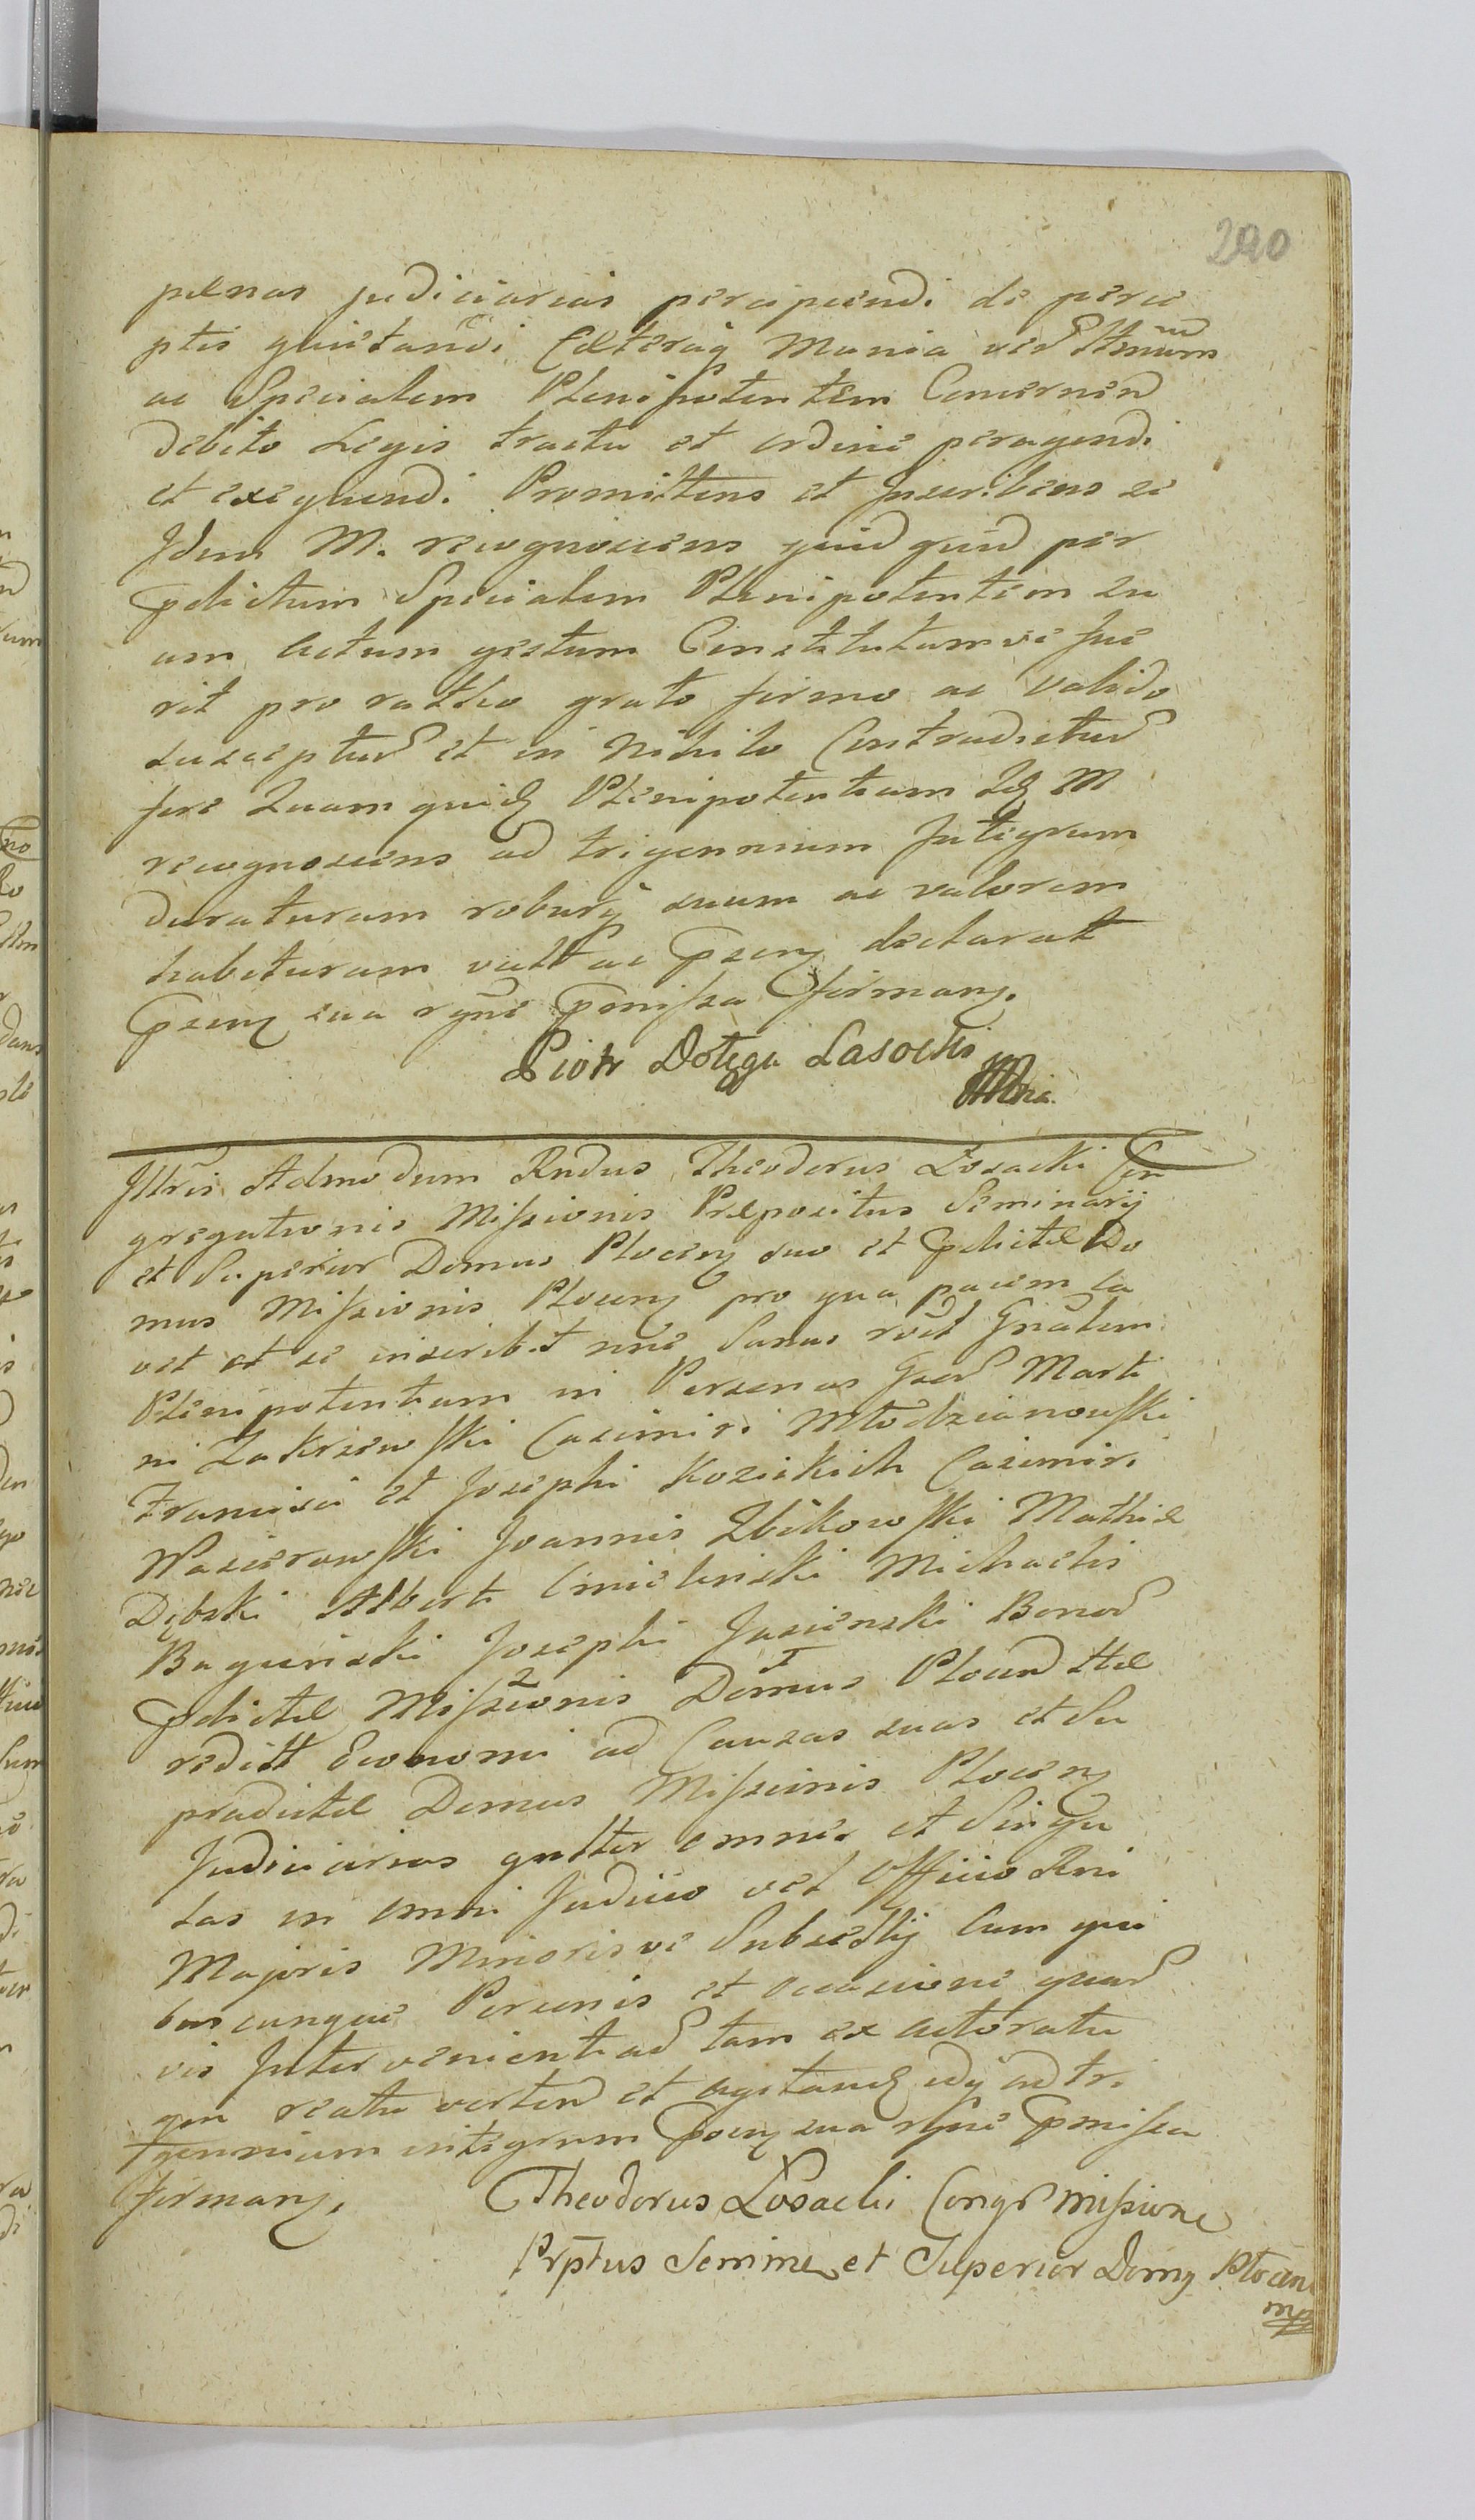 290
pænas judiciarias percipiendi de perce
ptis quietandi Cæteraq munia ved
ac Specialem Plenipotentem Concernen
debito Legis tractu et ordine peragendi
et exequendi Promittens et Inscribens se
Idem M. recognoscens quid quid per
pdictum Specialem Plenipotentem su
um actum gestum Constitutumve fue
rit pro ratho grato firmo ac valido
suscepturd et in nihilo Contradicturd
fore Quam quid Plenipotentiam Id M
recognoscens ad trigennium Integrum
duraturam roburq suum ac valorem
habituram vult ac psenz declarat
psenz sua rgne pmissa firmanz.
Piotr Dołęga Lasocki
Mpia.
Illris Admodum Rndus Theodorus Łosacki Con
gregationis Missionis Præpositus Seminarij
et Superior Domus Plocenz suo et pdictæ Do
mus Missionis Plocenz pro qua pacem ca
vet et se inscribit nne Sanus roet Gnalem
Plenipotentiam in Personas Gserd Marti
ni Zakrzewski Casimiri Młodzianowski
Francisci et Josephi Kozickich Casimiri
Wasierowski Joannis Zbikowski Mathiæ
Dębski Alberti Cmielinski Michaelis
Baginski Josephi Jasienski Bonod
pdictæ Missionis 2 Domus 1 Plocend Hæ
redit Economi ad Causas suas et Su
pradictæ Domus Missionis Plocenz
Judiciarias gnlter omnes et Singu
las in omni Judicio vel Officio Rni
Majoris Minorisve Subsellij Cum qui
buscunque Personis et occasione quad
vis Intervenientiad tam ex actoratu
qm reatu verten et agitand idq ad tri
gennium integrum psenz sua rgne pmissa
firmanz.
Theodorus Łosacki Congr Missione
Prptus Semine et Superior Domq Plocen
mp